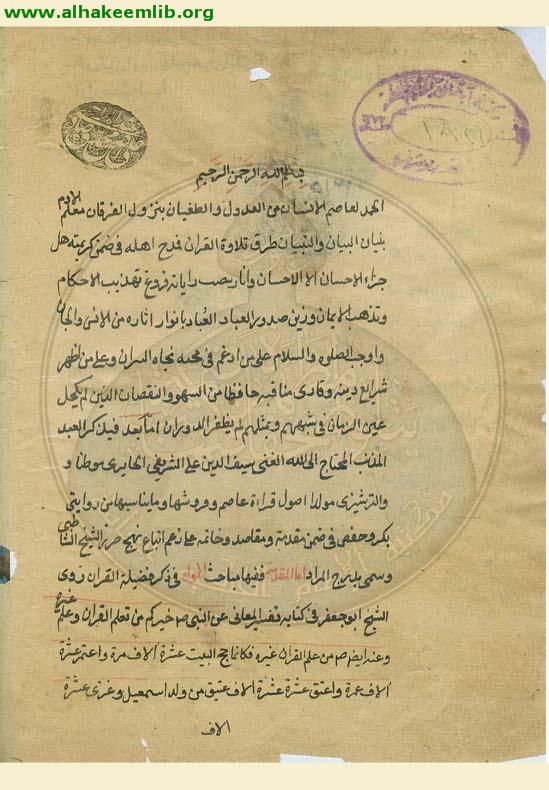 www.alhakeemlib.org
بسم الله الرحمن الرحيم
الحمد لعاصم الانسان من العدول والطغيان بنزول الفرقان معلم الادم
بنيان البيان والتبيان طرق تلاوة القران فدح اهله في ضمن كريمة هل
جزاء الاحسان الا الاحسان وانار بصب راياته فروغ تهذيب الاحكام
وتذهب الايمان وزين صدور العباد العُباد بانوار اثاره من الانس والجان
واوجب الصلوة والسلام على من ادغم في محبته نجاة النيران وعلى من اظهر
شرايع دينه وقارى مناقبه حافظا من السهو والنقصان الذين لم يكحل
عين الزمان في شبههم وبمثلهم لم يظفر الدوران اما بعد فيذكر العبد
المذنب المحتاج الى الله الغنى سيف الدين على الشريفى الحايرى موطنا و
والترشيزى مولدا اصول قراءة عاصم وفروشها وما يناسبها من روايتى
بكر وحفص في ضمن مقدمة ومقاصد وخاتمه على زعم اتباع نهج حرز الشيخ الشاطبى
وسمى بدرج المراد اما المقدمة ففيها مباحث الاول في ذكر فضيلة القران روى
الشيخ ابو جعفر في كتابه تفسير المعانى عن النبى ص خيركم من تعلم القران وعلم غيره
وعنه ايضا ص من علم القران غيره فكانما حج البيت عشرة الاف مرة واعتمر عشرة
الاف عمرة واعتق عشرة عشرة الاف عتيق من ولد اسمعيل وغزى عشرة
الاف